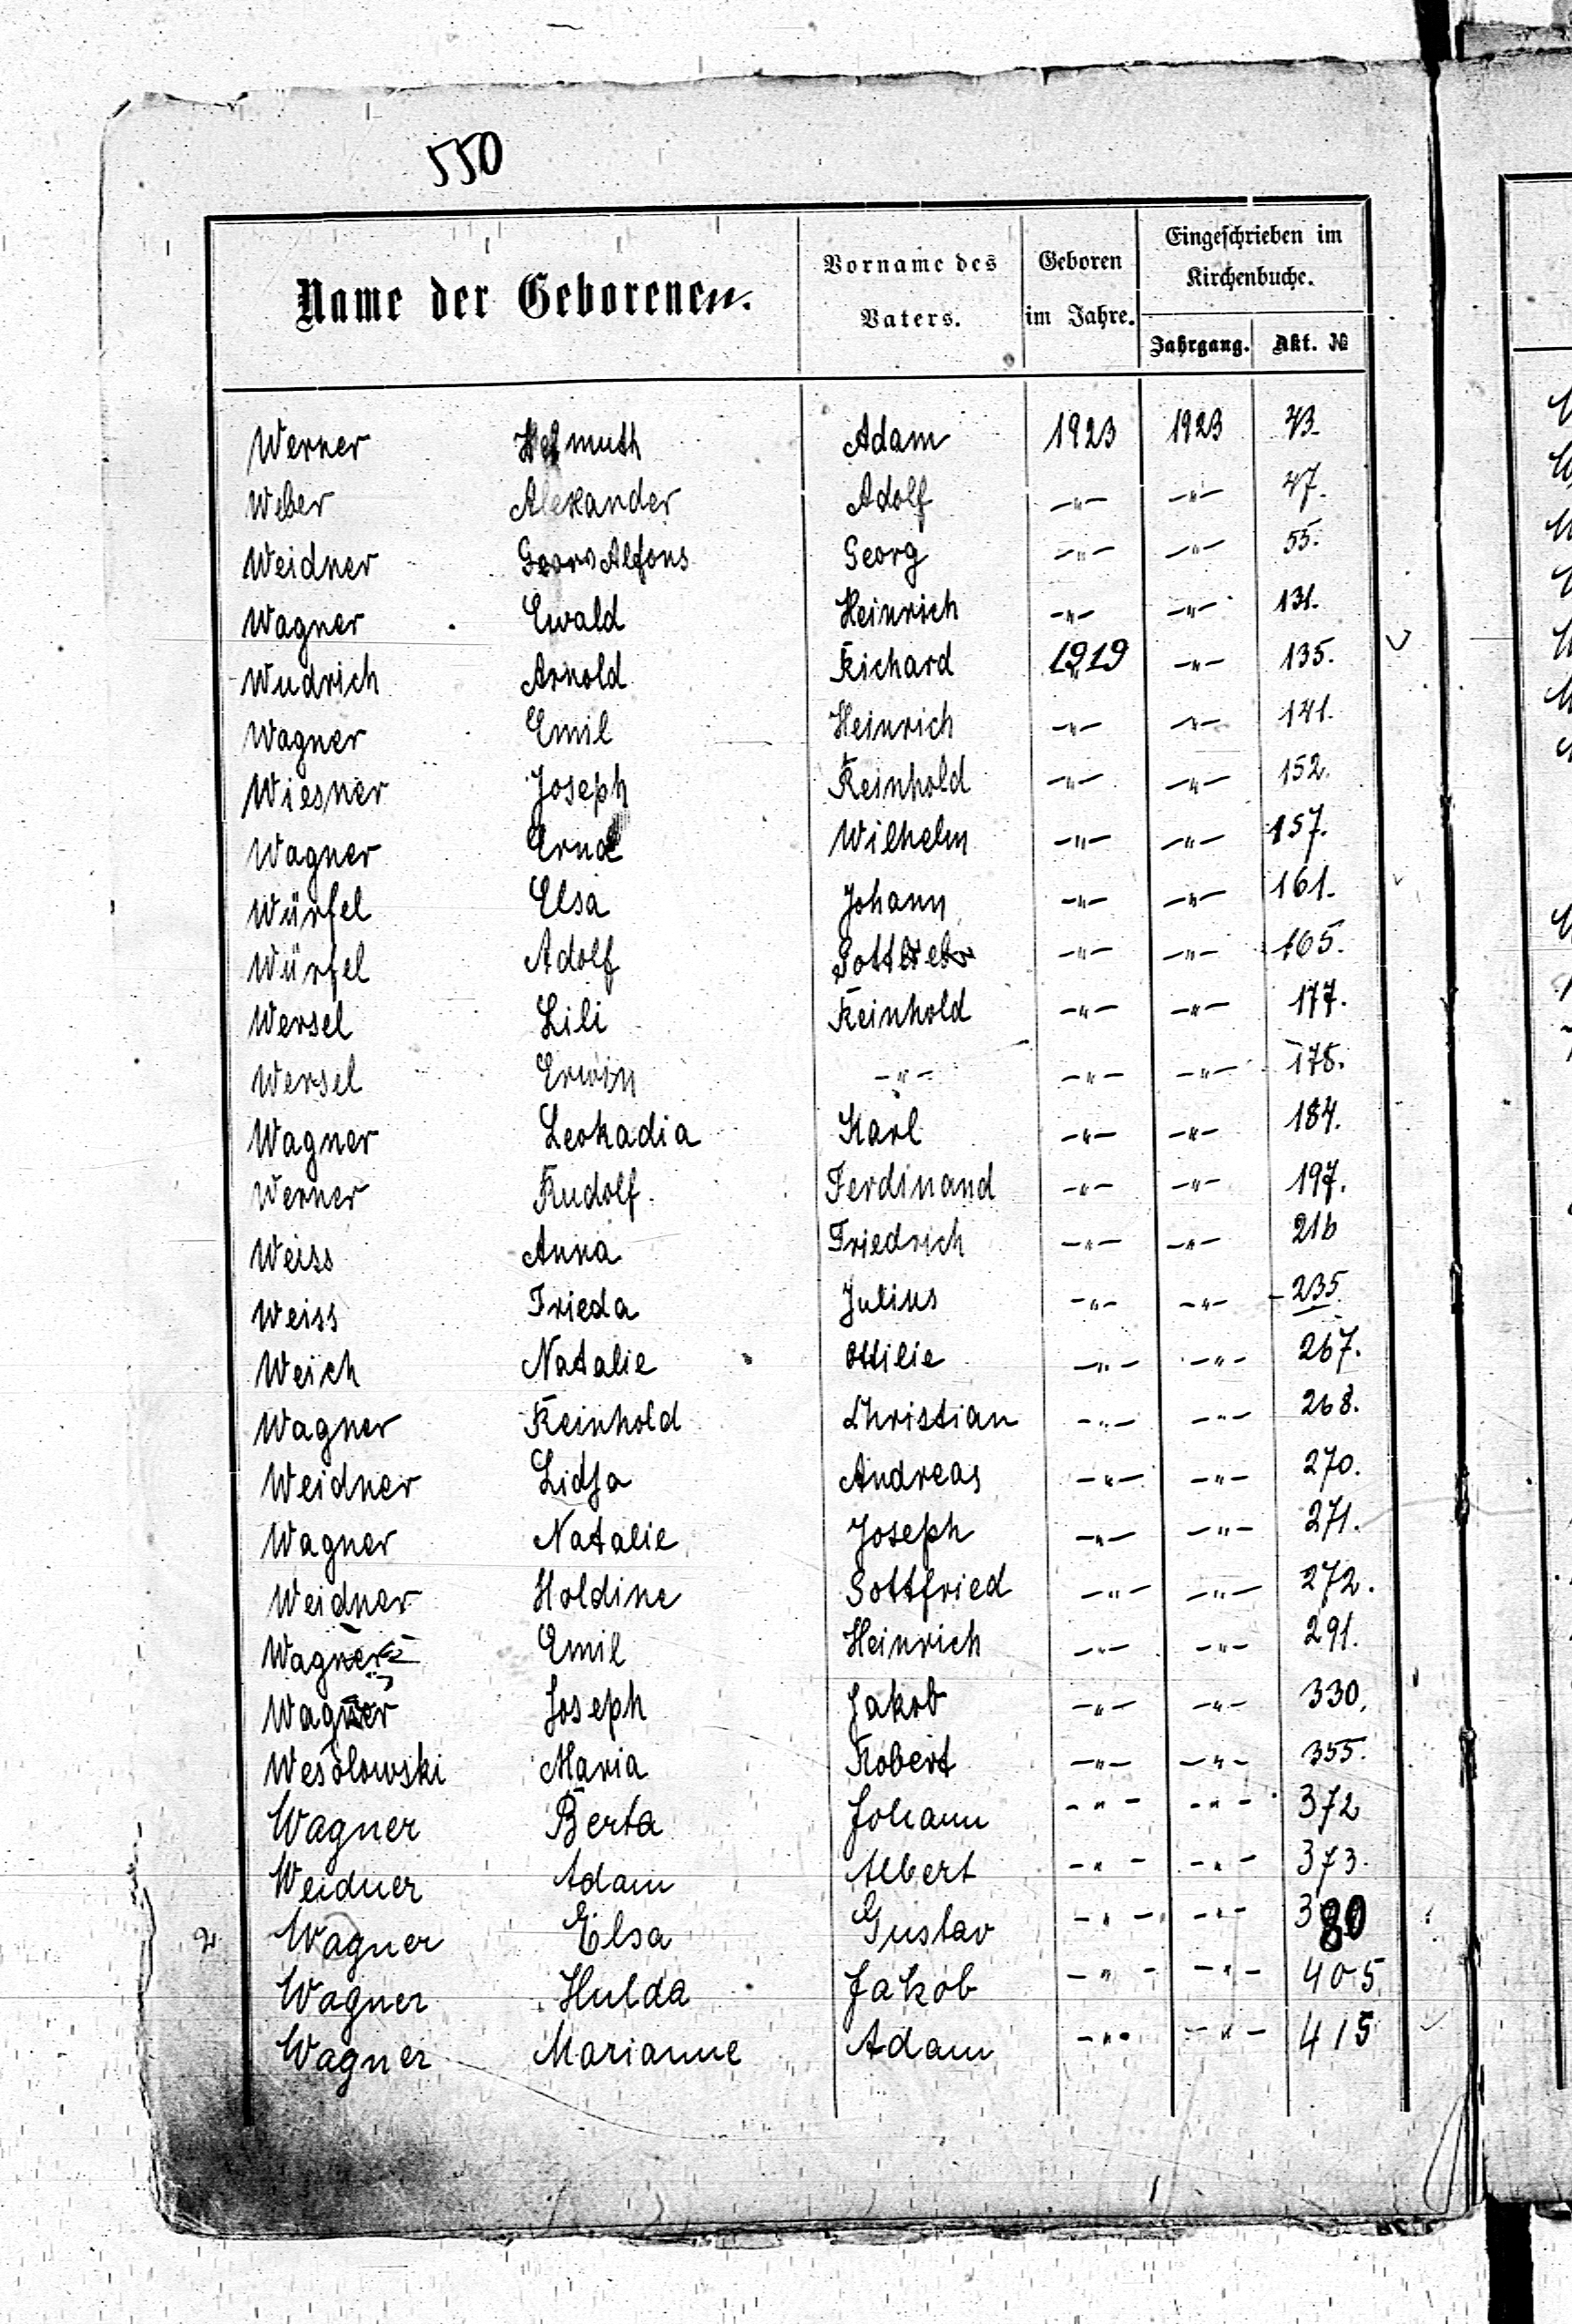 550
Name der Geborenen.
Vorname des Vaters.
Geboren im Jahre.
Eingeschrieben im Kirchenbuche.
Jahrgang. Akt. №
Werner Helmuth Adam 1923 1923 43.
Weber Alexander Adolf -"- -"- 47.
Weidner Georg Alfons Georg -"- -"- 55.
Wagner Ewald Heinrich -"- -"- 131.
Wudrich Arnold Richard 1919 -"- 135.
Wagner Emil Heinrich -"- -"- 141.
Wiesner Joseph Reinhold -"- -"- 152.
Wagner Erna Wilhelm -"- -"- 157.
Würfel Elsa Johann -"- -"- 161.
Würfel Adolf Gottlieb -"- -"- 165.
Wersel Lili Reinhold -"- -"- 177.
Wersel Erwin -"- -"- -"- 178.
Wagner Leokadia Karl -"- -"- 184.
Werner Rudolf Ferdinand -"- -"- 197.
Weiss Anna Friedrich -"- -"- 216
Weiss Frieda Julius -"- -"- 235
Weich Natalie Ottilie -"- -"- 267.
Wagner Reinhold Christian -"- -"- 268.
Weidner Lidja Andreas -"- -"- 270.
Wagner Natalie Joseph -"- -"- 271.
Weidner Holdine Gottfried -"- -"- 272.
Wagner Emil Heinrich -"- -"- 291.
Wagner Joseph Jakob -"- -"- 330.
Wesolowski Maria Robert -"- -"- 355.
Wagner Berta Johann -"- -"- 372
Weidner Adam Albert -"- -"- 373.
Wagner Elsa Gustav -"- -"- 380
Wagner Hulda Jakob -"- -"- 405
Wagner Marianne Adam -"- -"- 415